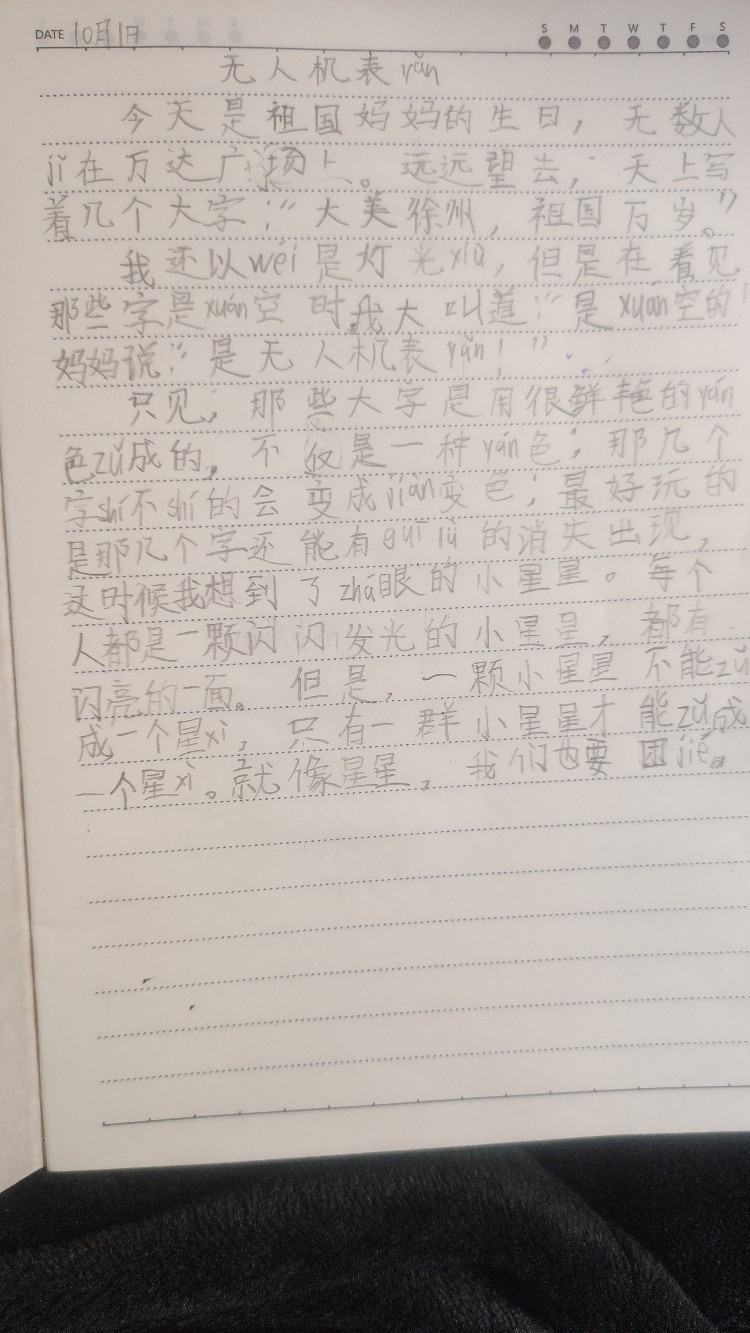 DATE 10月1日 S M T W T F S
无人机表yǎn
今天是祖国妈妈的生日，无数人
jí在万达广场上。远远望去，天上写
着几个大字：“大美徐州，祖国万岁。”
我还以wéi是灯光xiù，但是在看见
那些字是xuán空时，我大叫道：“是xuán空的！
妈妈说：“是无人机表yǎn！”
只见，那些大字是用很鲜艳的yán
色zǔ成的，不仅是一种yán色；那几个
字shí不shí的会变成jiàn变色；最好玩的
是那几个字还能有guī lǜ的消失出现，
这时候我想到了zhá眼的小星星。每个
人都是一颗闪闪发光的小星星，都有
闪亮的一面。但是，一颗小星星不能zǔ
成一个星xì，只有一群小星星才能zǔ成
一个星xì。就像星星，我们也要团jié。